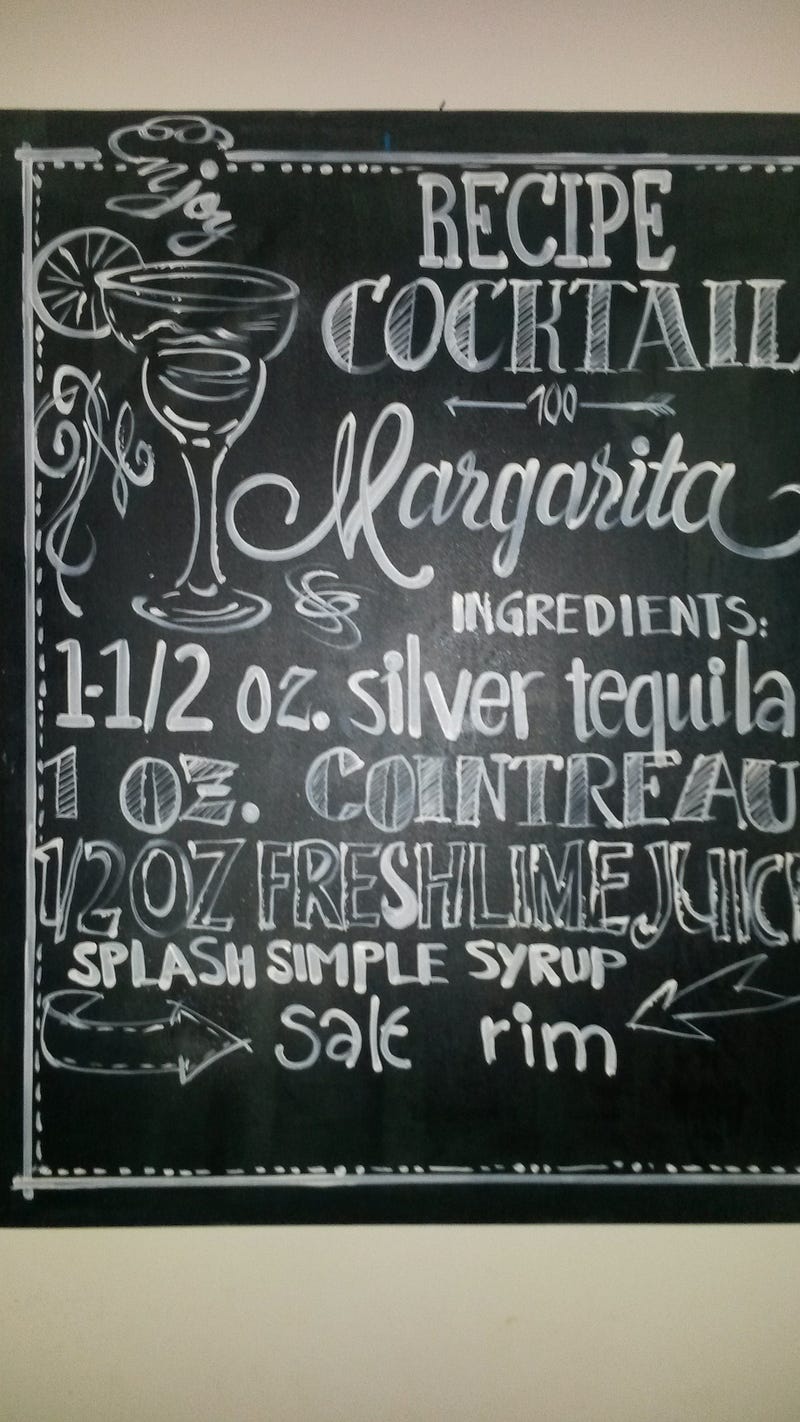 Enjoy
RECIPE
COCKTAIL
100
Margarita
INGREDIENTS:
1-1/2 oz. silver tequila
1 OZ. COINTREAU
1/2 OZ FRESH LIME JUICE
SPLASH SIMPLE SYRUP
salt rim